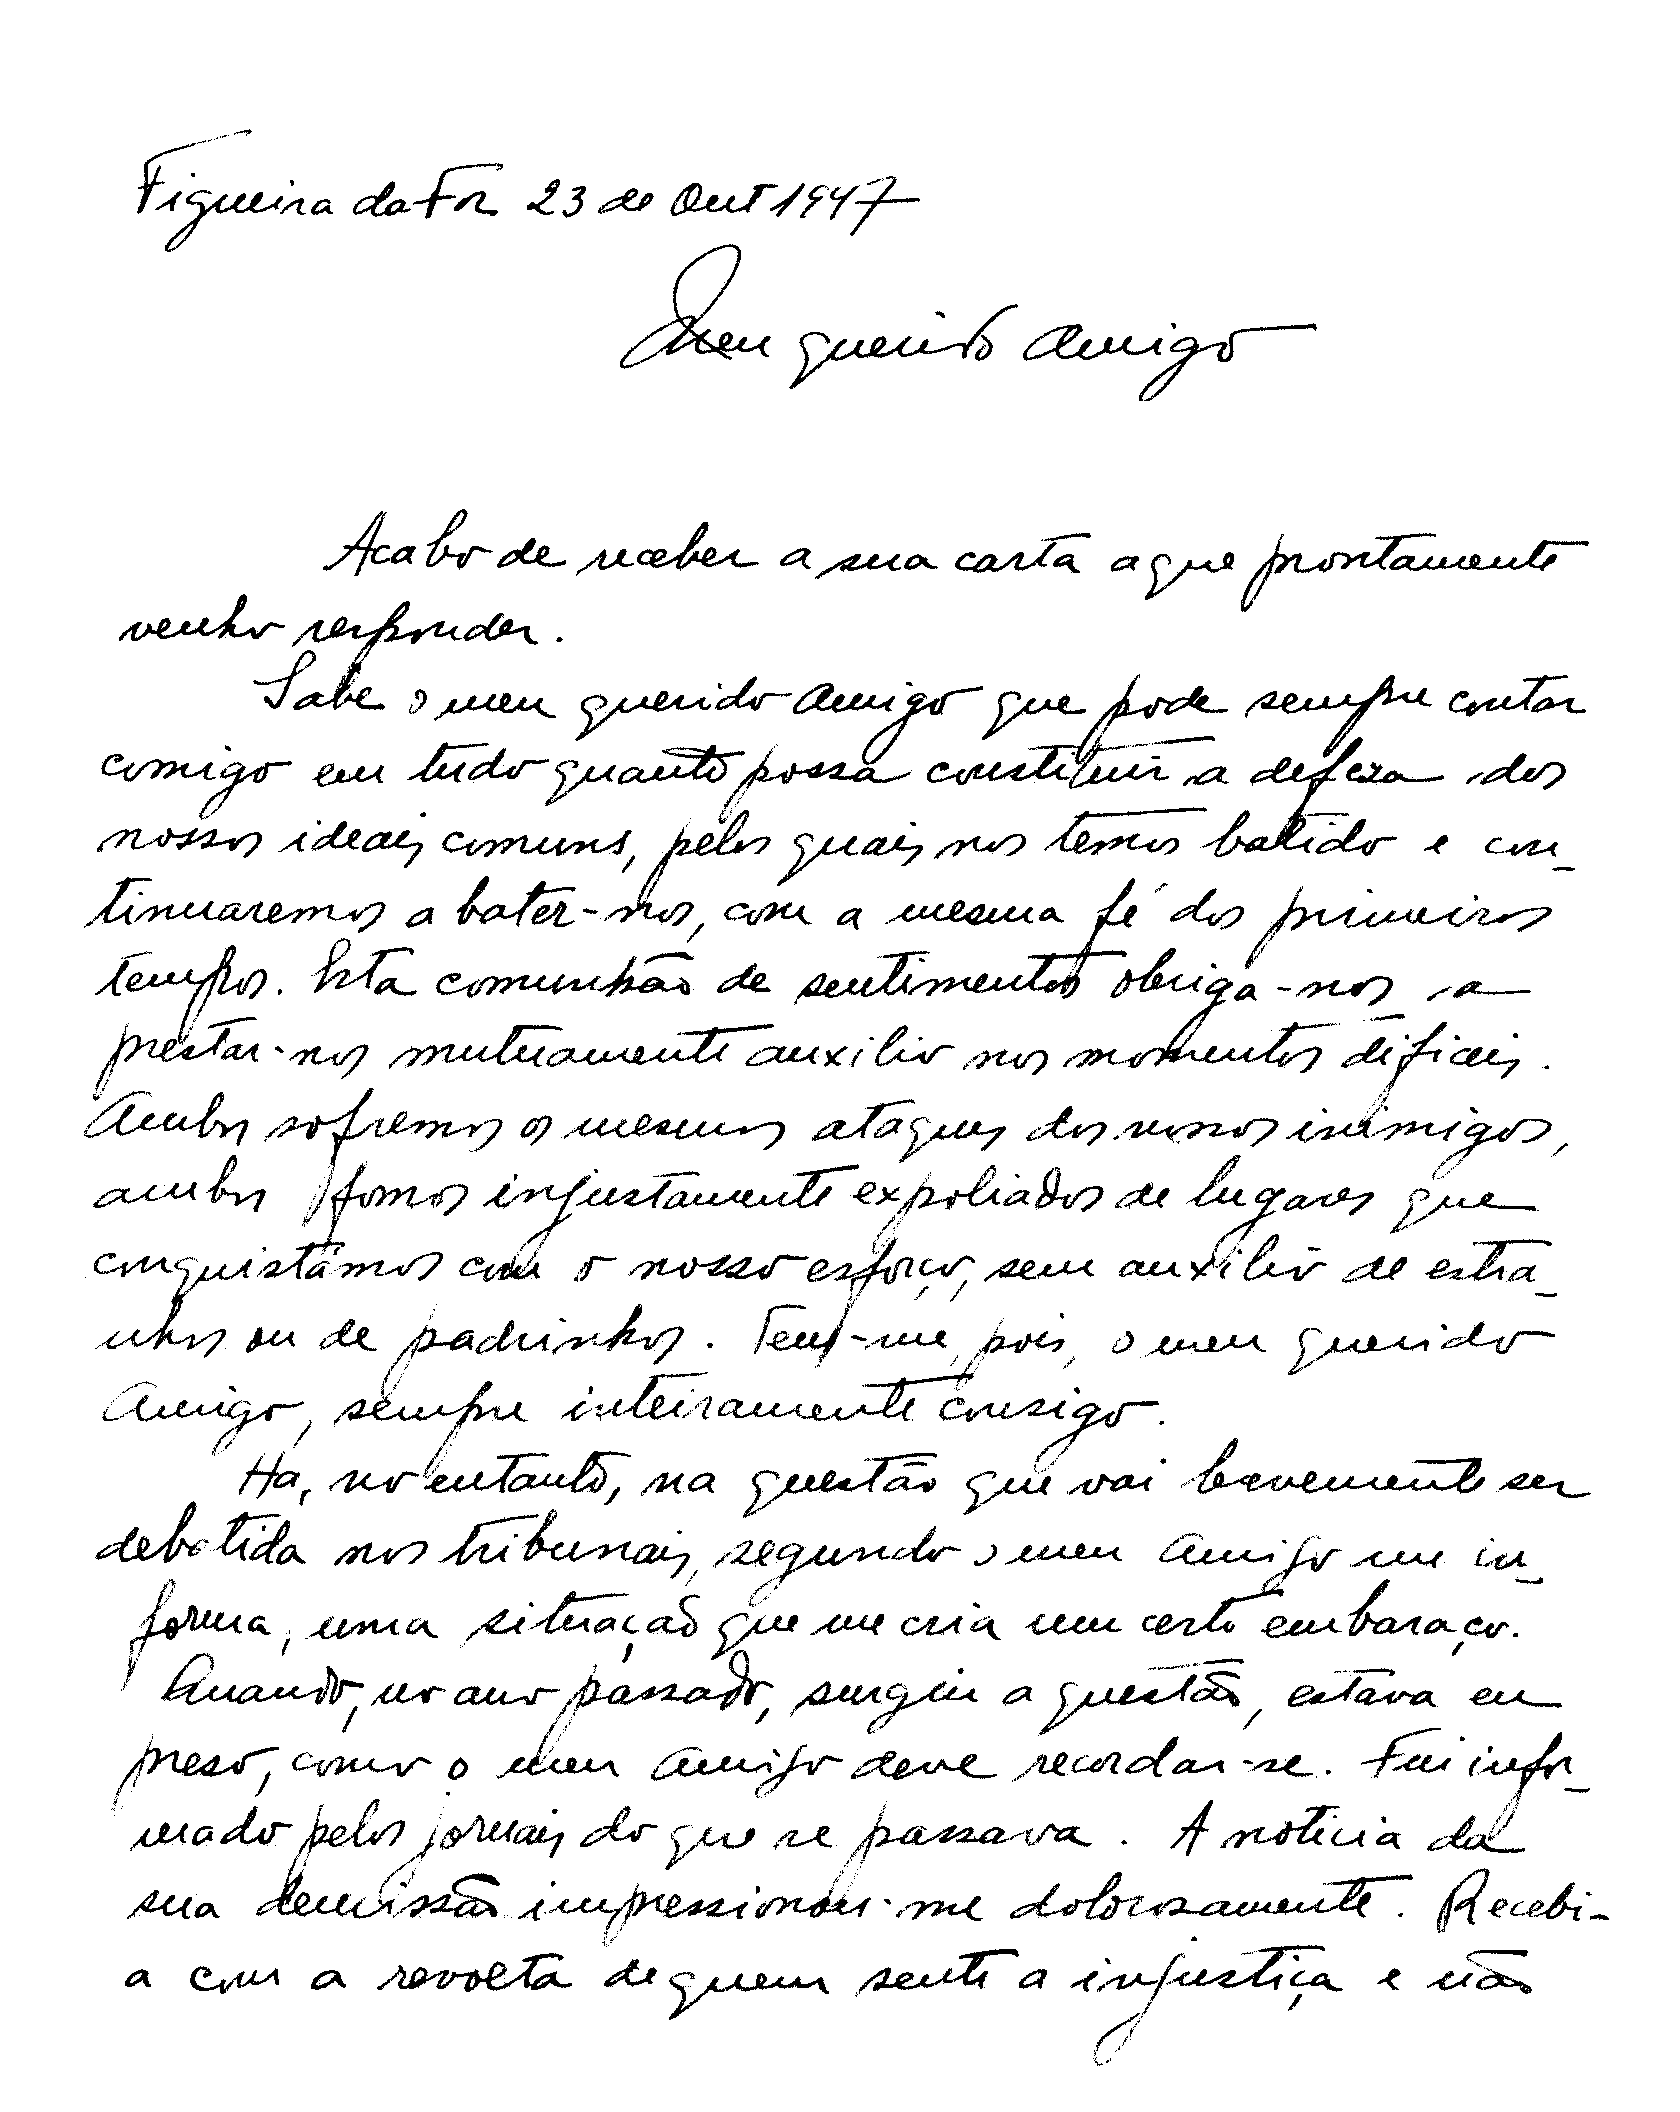 Figueira da Foz 23 de Out 1947
Meu querido Amigo
Acabo de receber a sua carta a que prontamente
venho responder.
Sabe o meu querido Amigo que pode sempre contar
comigo em tudo quanto possa constituir a defeza dos
nossos ideais comuns, pelos quais nos temos batido e con-
tinuaremos a bater-nos, com a mesma fé dos primeiros
tempos. Esta comunhão de sentimentos obriga-nos a
prestar-nos mutuamente auxilio nos momentos dificeis.
Ambos sofremos os mesmos ataques dos nossos inimigos,
ambos fomos injustamente expoliados de lugares que
conquistámos com o nosso esforço, sem auxilio de estra-
nhos ou de padrinhos. Tem-me, pois, o meu querido
Amigo, sempre inteiramente consigo.
Ha, no entanto, na questão que vai brevemente ser
debatida nos tribunais, segundo o meu Amigo me in-
forma, uma situação que me cria um certo embaraço.
Quando, no ano passado, surgiu a questão, estava eu
preso, como o meu Amigo deve recordar-se. Fui infor-
mado pelos jornais do que se passava. A noticia da
sua demissão impressionou-me dolorosamente. Recebi-
a com a revolta de quem sente a injustiça e não